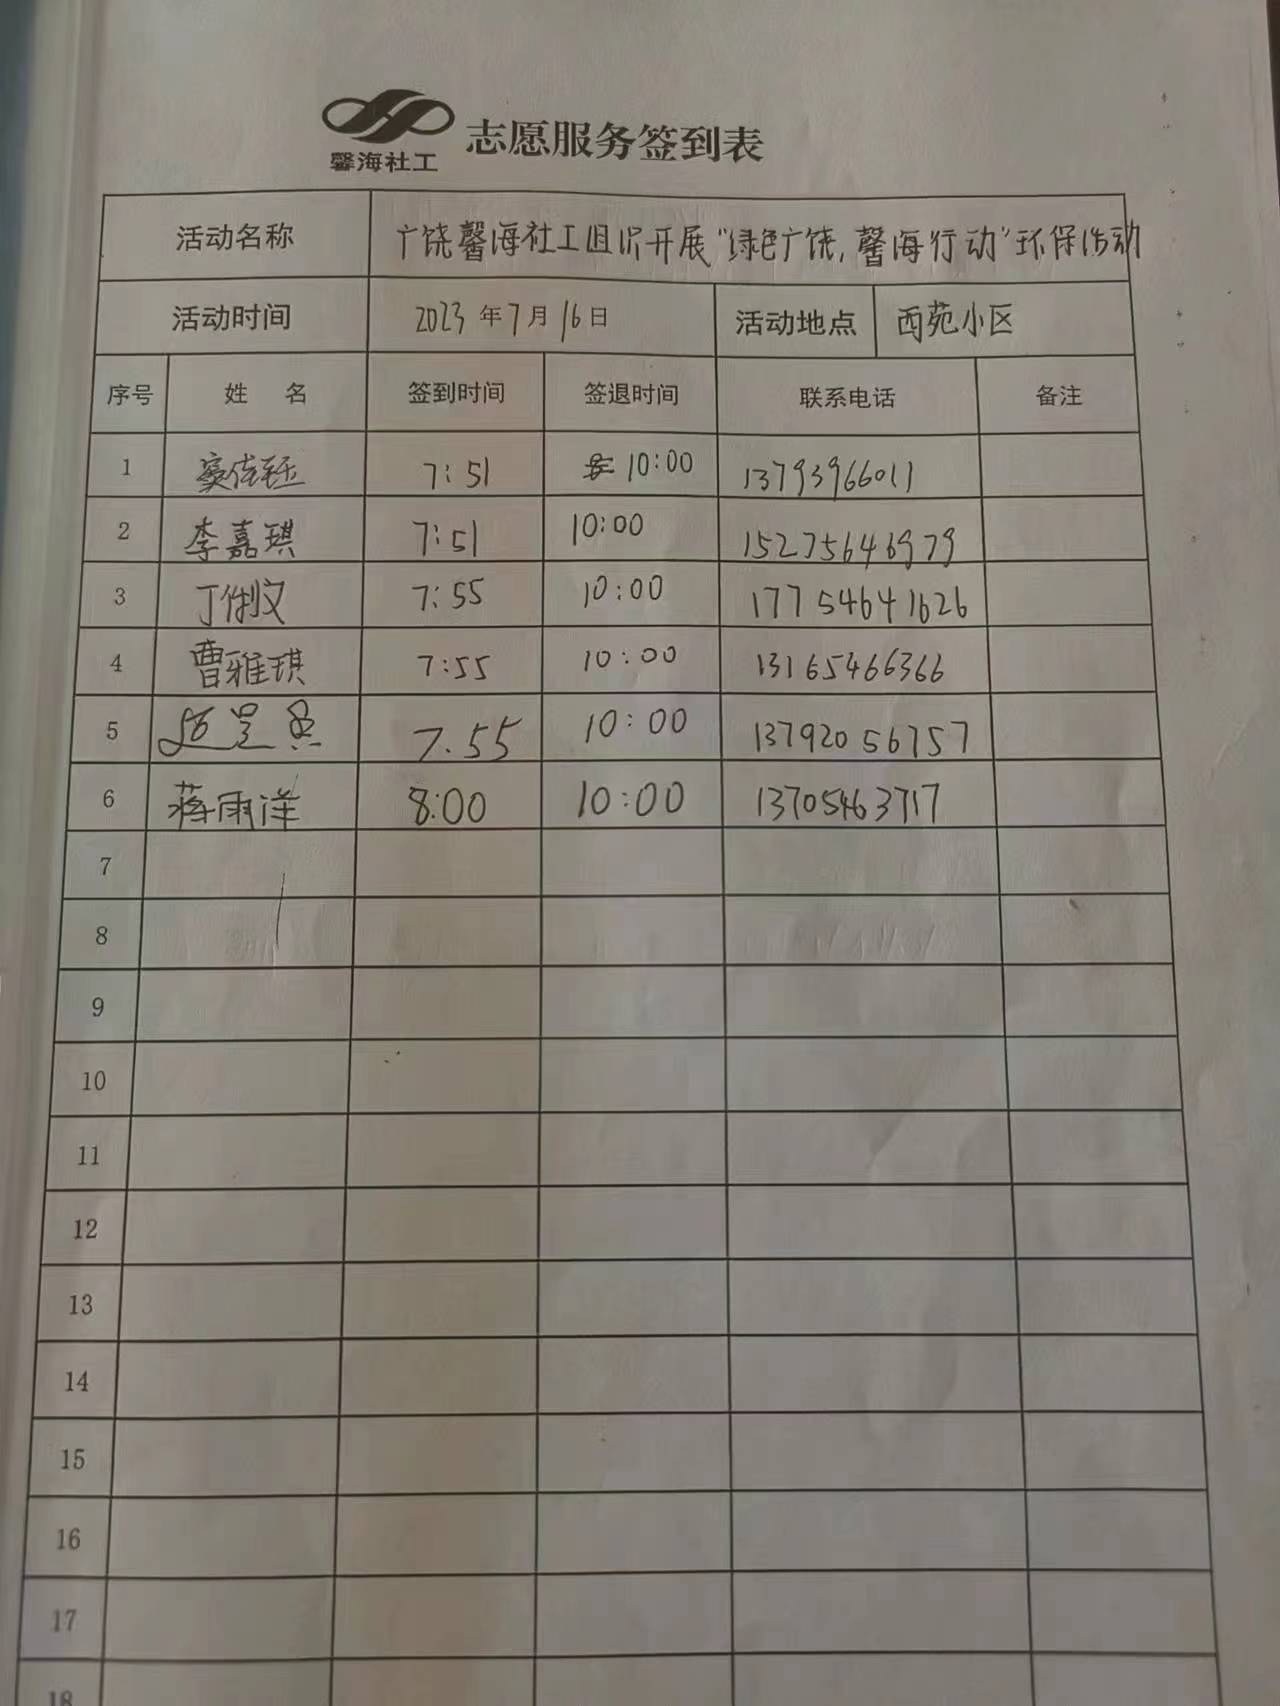 馨海社工 志愿服务签到表
活动名称 广饶馨海社工组织开展“绿色广饶,馨海行动”环保活动
活动时间 2023年7月16日 活动地点 西苑小区
序号 姓 名 签到时间 签退时间 联系电话 备注
1 佳钰 7:51 10:00 13793966011
2 李嘉琪 7:51 10:00 15275646979
3 丁俐文 7:55 10:00 17754641626
4 曹雅琪 7:55 10:00 13165466366
5 7.55 10:00 13792056757
6 蒋雨洋 8:00 10:00 13705463717
7
8
9
10
11
12
13
14
15
16
17
18